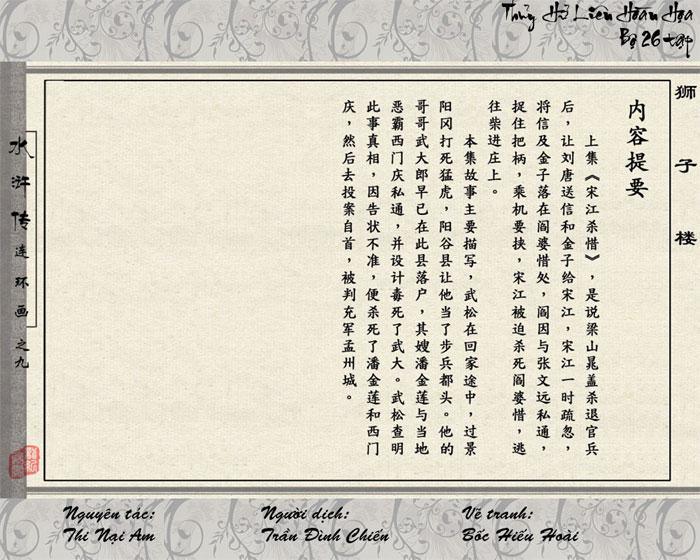 Thủy Hử Liên Hoàn Họa
Bộ 26 tập
狮子楼
内容提要
上集《宋江杀惜》，是说梁山晁盖杀退官兵
后，让刘唐送信和金子给宋江，宋江一时疏忽，
将信及金子落在阎婆惜处，阎因与张文远私通，
捉住把柄，乘机要挟，宋江被迫杀死阎婆惜，逃
往柴进庄上。
本集故事主要描写，武松在回家途中，过景
阳冈打死猛虎，阳谷县让他当了步兵都头。他的
哥哥武大郎早已在此县落户，其嫂潘金莲与当地
恶霸西门庆私通，并设计毒死了武大。武松查明
此事真相，因告状不准，便杀死了潘金莲和西门
庆，然后去投案自首，被判充军孟州城。
水浒传连环画之九
Nguyên tác:
Thi Nại Am
Người dịch:
Trần Đình Chiến
Vẽ tranh:
Bốc Hiếu Hoài